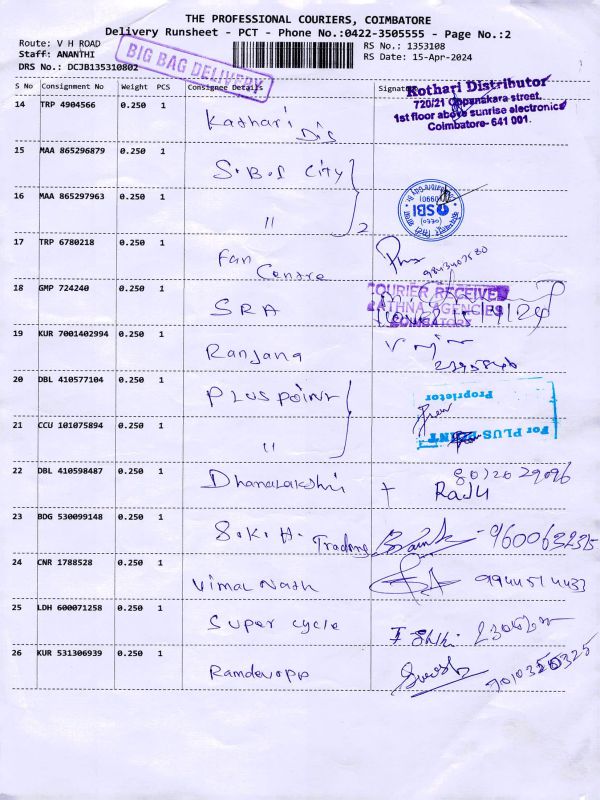 THE PROFESSIONAL COURIERS, COIMBATORE
Delivery Runsheet - PCT - Phone No.:0422-3505555 - Page No.:2
Route: V H ROAD
Staff: ANANTHI
DRS No.: DCJB135310802
BIG BAG DELIVERY
RS No.: 1353108
RS Date: 15-Apr-2024
S No Consignment No Weight PCS Consignee Details Signature
Kothari Distributor
720/21 Oppanakara street,
1st floor above sunrise electronics
Coimbatore- 641 001.
14 TRP 4904566 0.250 1 Kathari Dis
15 MAA 865296879 0.250 1 S.B.I City
16 MAA 865297963 0.250 1 " 2
SBI
17 TRP 6780218 0.250 1 Fan Centre
18 GMP 724240 0.250 1 SRA
COURIER RECEIVED
RATHNA AGENCIES
COIMBATORE
19 KUR 7001402994 0.250 1 Ranjana
20 DBL 410577104 0.250 1 PLUS POINT
Proprietor
For PLUS POINT
21 CCU 101075894 0.250 1 "
22 DBL 410598487 0.250 1 Dhanalakshmi
8012029096
Raju
23 BDG 530099148 0.250 1 S.K.H. Trading
24 CNR 1788528 0.250 1 Vimal Nath 9944514433
25 LDH 600071258 0.250 1 Super cycle
26 KUR 531306939 0.250 1 Ramdevopp Suresh 7010350325